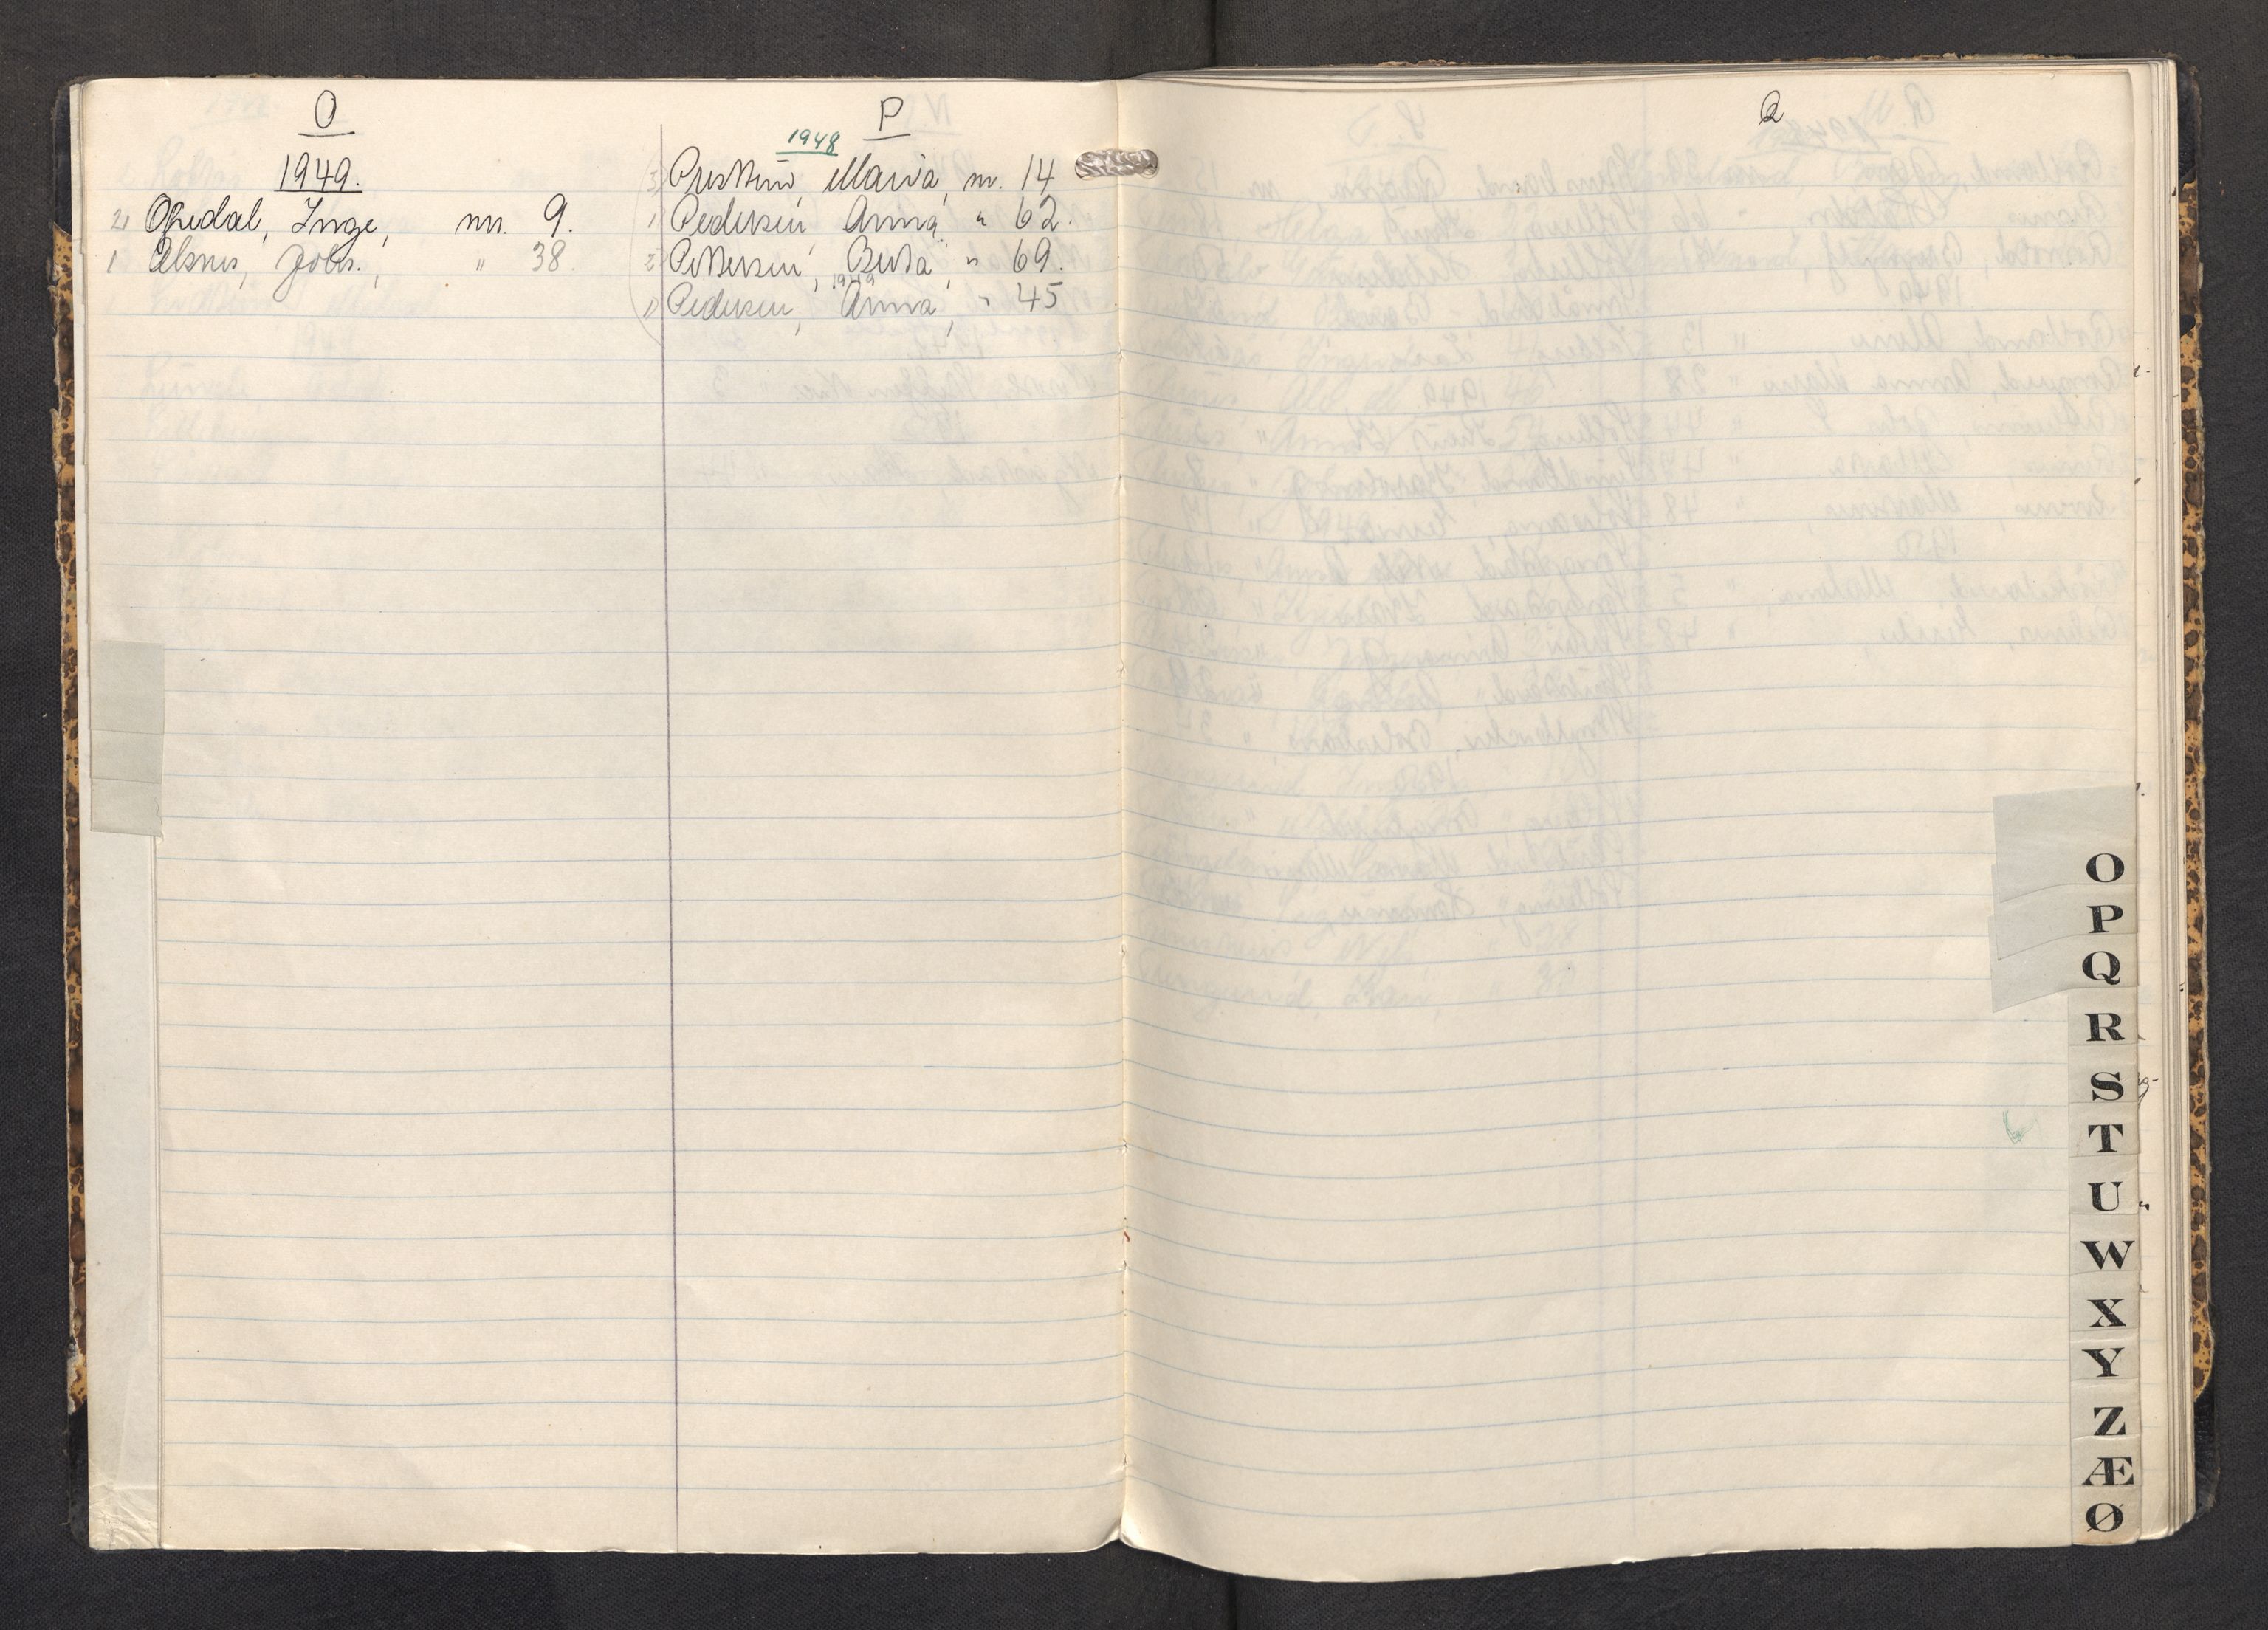 O
1949.
2) Opedal, Inge, nr. 9.
1 Johs., " 38.
P
1948
3) Maria, nr. 14
1) Pedersen, Anna, " 62.
2) Pettersen, Berta, " 69.
1949
1) Pedersen, Anna, " 45
Q
O
P
Q
R
S
T
U
W
X
Y
Z
Æ
Ø